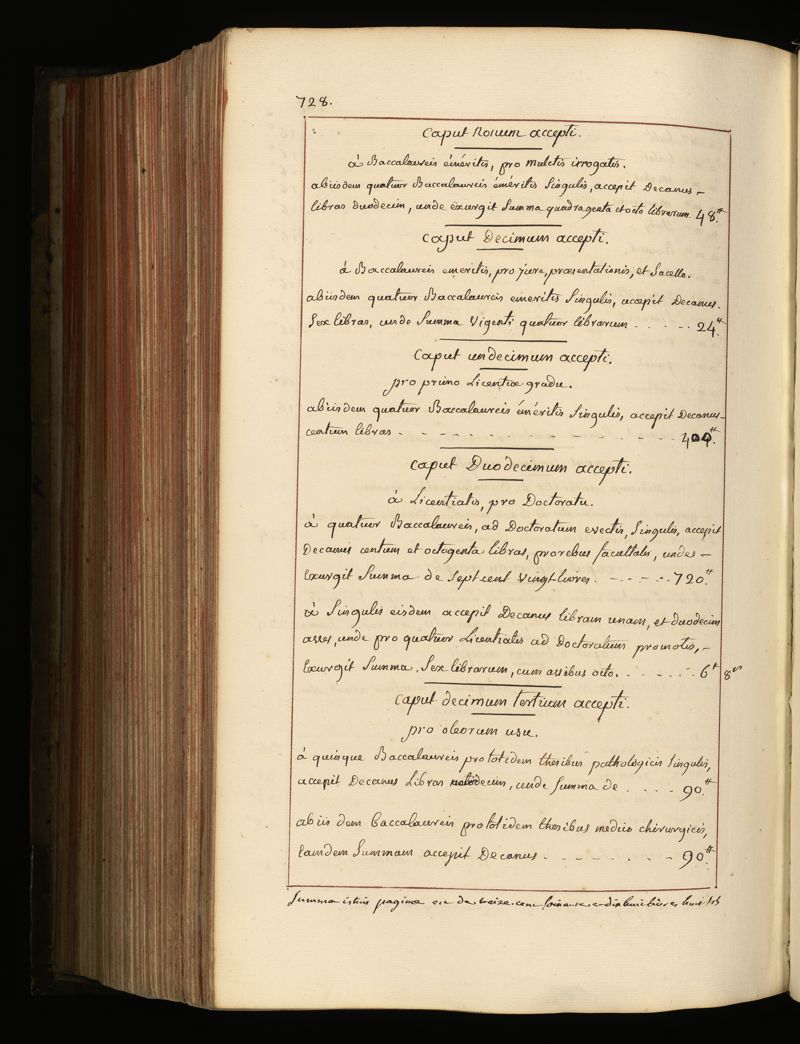 728.
Caput Nonum accepti.
à Baccalaureis éméritis, pro mulctis irrogatis.
abiisdem quatuor Baccalaureis éméritis Singulis, accepit Decanus
libras duodecim, unde éxurgit Summa quadragenta et octo librarum. 48.tt
Caput Decimum accepti.
à Baccalaureis emeritis, pro jure, præsentationis, et Sacello.
abiisdem quatuor Baccalaureis emeritis Singulis, accepit Decanus.
Sex libras, unde Summa Vigenti quatuor librarum . . . . . 24.tt
Caput undecimum accepti.
pro primo Licentiæ gradu.
abiisdem quatuor Baccalaureis éméritis Singulis, accepit Decanus
centum libras . - - - - - - - - - - - 400.tt
Caput Duodecimum accepti.
à Licentiatis, pro Doctoratu.
à quatuor Baccalaureis, ad Doctoratum evectis, Singulis, accepit
Decanus centum et octogenta libras, pro rebus facultatis, undes
Exurgit Summa de Sept-cent Vingt-livres. - - - . - 720.tt
à Singulis eisdem accepit Decanus libram unam, et duodecim
asses, unde pro quatuor Licentiatis ad Doctoratum promotis,
Exurgit Summa. Sex librarum, cum assibus octo. . - - . . - 6tt 8s
Caput decimum tertium accepti.
pro oleorum usu.
à quinque Baccalaureis pro totidem thesibus pathologicis Singulis,
accepit Decanus Libras octodecim, unde Summa de . . . . 90.tt
ab iis dem baccalaureis pro totidem thesibus medico chirurgicis,
Eamdem Summam accepit Decanus . - - - - - - - 90.tt
Summa istius paginæ est de treize cent soixante et dix huit livres huit sols